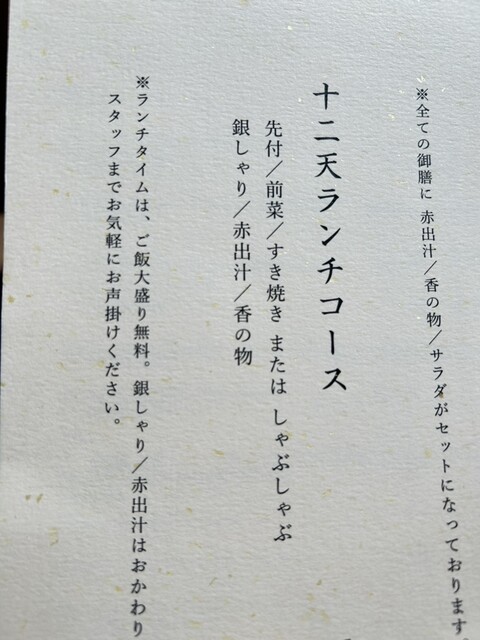 ※全ての御膳に 赤出汁／香の物／サラダがセットになっております
十二天ランチコース
先付／前菜／すき焼き または しゃぶしゃぶ
銀しゃり／赤出汁／香の物
※ランチタイムは、ご飯大盛り無料。銀しゃり／赤出汁はおかわり
スタッフまでお気軽にお声掛けください。